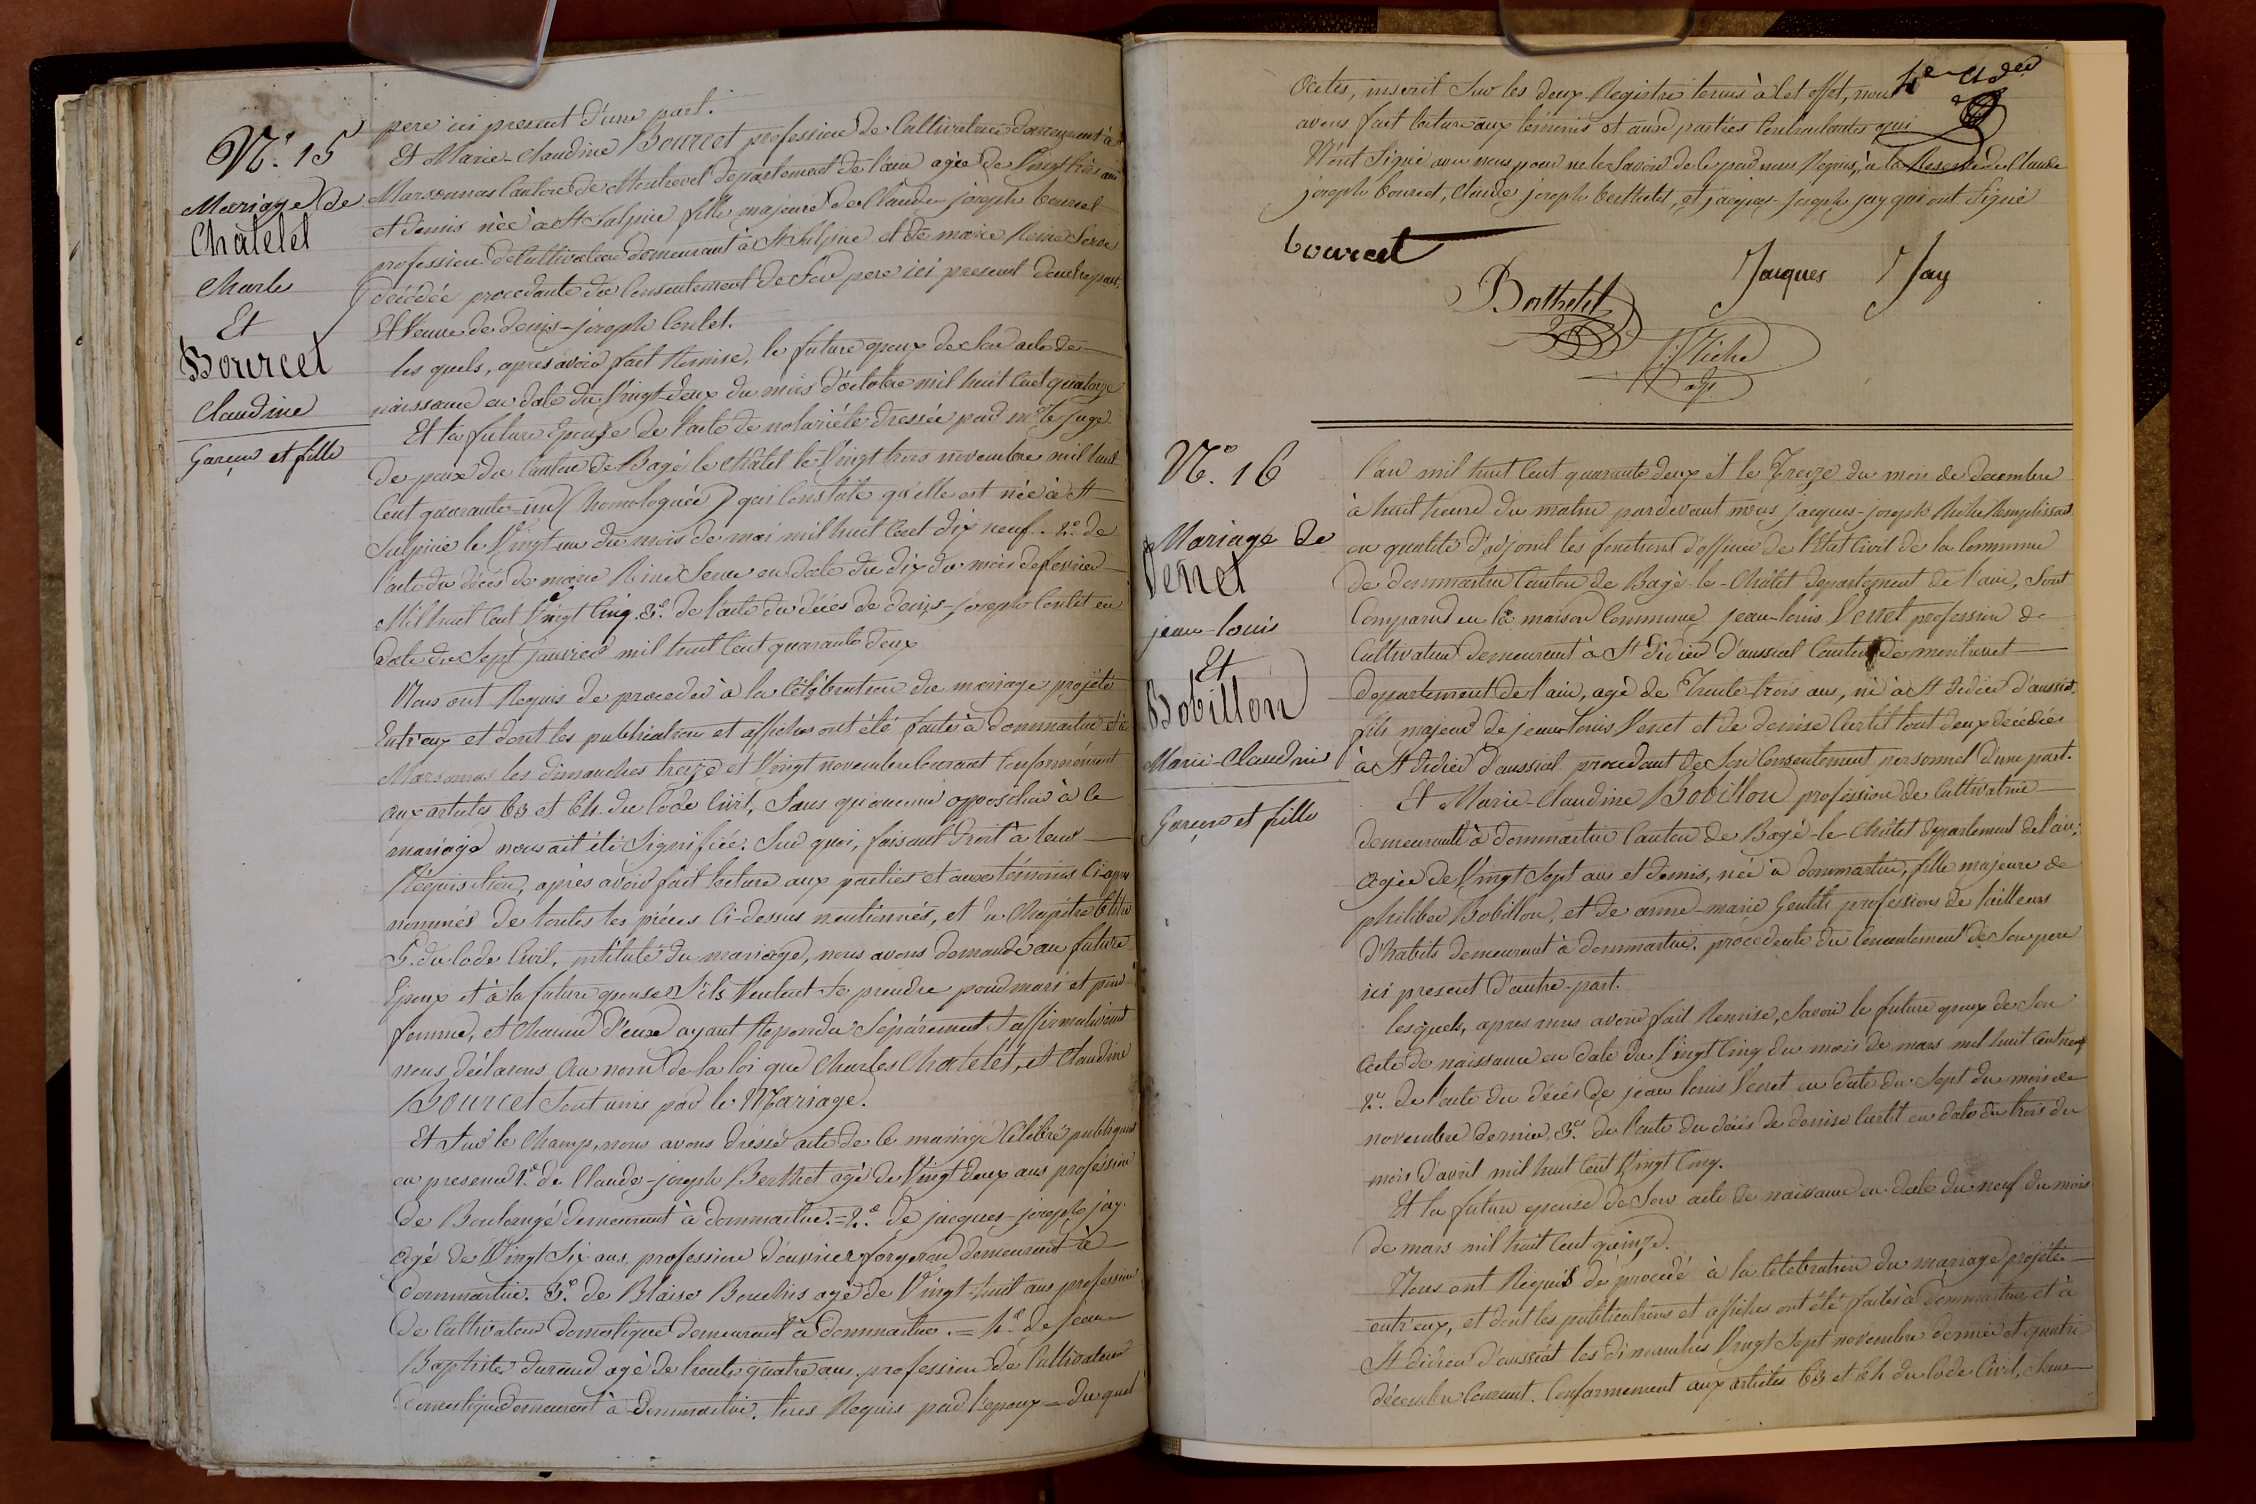 N.° 15
Mariage de
Châtelet
Charle
Et
Bourcet
Claudine
Garçon et fille
pere ici present d'une part.
Et Marie-Claudine Bourcet profession de Cultivatrice demeurant à
Marsonnas Canton de Montrevel departement de l'ain agée de Vingt trois ans
et demis née à St Sulpice fille majeure de Claude-joseph bourcet
profession de Cultivateur demeurant à St Sulpice et de marie Reine
décédée procedante du Consentement de Son pere ici present d'autre part.
Et Veuve de denis-joseph Contet.
les quels, apres avoir fait Remise, le future epoux de Son acte de
naissance en date du Vingt-deux du mois d'octobre mil huit Cent quatorze
Et la future Epouse de l'acte de notoriété dressée par mr le juge
de paix du Canton de Bagé le Châtel le Vingt trois novembre mil huit
Cent quarante-un (homologuée) qui Constate qu'elle est née à St
Sulpice le Vingt-un du mois de mai mil huit Cent dix neuf. 2.° de
l'acte du décés de marie Reine en date du dix du mois de fevrier
Mil huit Cent Vingt Cinq. 3.° de l'acte du décés de denis-joseph Contet en
date du Sept janvier mil huit Cent quarante deux
Nous ont Requis de proceder à la Célébration du mariage projété
Entr'eux et dont les publications et affiches ont été faites à dommartin et à
Marsonnas les dimanches treize et Vingt novembre Courant Conformément
aux articles 63 et 64 du Code Civil, Sans qu'aucune opposition à Ce
mariage nous ait été Signifiée. Sur quoi, faisant droit à leur
Réquisition, après avoir fait lecture aux parties et aux témoins Ci-apres
nommés de toutes les piéces Ci-dessus mentionnés, et du Chapitre 6 titre
5. du Code Civil, intitulé du mariage, nous avons demandé au future
Epoux et à la future epouse S'ils Veulent Se prendre pour mari et pour
femme, et Chacun d'eux ayant Repondu Séparement et affirmativement
nous déclarons Au nom de la loi que Charles Chatelet, et Claudine
Bourcet Sont unis par le Mariage.
Et Sur le Champ, nous avons dressé acte de Ce mariage Célébré publiquement
en presence 1.° de Claude-joseph Berthet agé de Vingt deux ans profession
de Boulangé demeurant à dommartin. = 2.° de jacques-joseph jay
agé de Vingt Six ans profession d'ouvrier forgeron demeurant à
Dommartin. 3.° de Blaise Bouchis agé de Vingt-huit ans profession
de Cultivateur domestique demeurant à Dommartin. = 4.° de jean-
Baptiste durand agé de trente quatre ans profession de Cultivateur
domestique demeurant à dommartin. tous Requis par l'epoux = du quel
actes, inscrit Sur les deux Registre tenus à Cet effet, nous
avons fait lecture aux témoins et aux parties Contractantes qui
N'ont Signé avec nous pour ne le Savoir de Ce par nous Requis, à la Reserve de Claude
joseph bourcet, Claude joseph berthelet, et jacques-joseph jay qui ont Signé
bourcet
Berthelet
Jacques Jay
Miche
adj.
N.° 16
Mariage de
Venet
jean-louis
Et
Bobillon
Marie-Claudine
Garçon et fille
l'an mil huit Cent quarante deux et le Treize du mois de decembre
à huit heure du matin pardevant nous jacques-joseph Miche Remplissant
en qualité d'adjoint les fonctions d'officier de l'Etat Civil de la Commune
de dommartin Canton de Bagé-le-Châtel departement de l'ain, Sont
Comparus en la maison Commune jean-louis Venet profession de
Cultivateur demeurant à St didier d'aussiat Canton de montrevel
departement de l'ain, agé de Trente trois ans, né à St didier d'aussiat
fils majeur de jean-louis Venet et de denise Curtil tout deux décédées
à St didier d'aussiat procedant de Son Consentement personnel d'une part.
Et Marie-Claudine Bobillon profession de Cultivatrice
demeurante à dommartin Canton de Bagé-le-Châtel departement de l'ain,
agée de Vingt Sept ans et demis, née à dommartin, fille majeure de
philiber Bobillon, et de anne-marie Gentils professions de tailleurs
d'habits demeurant à dommartin. procedante du Consentement de Son pere
ici present d'autre-part.
lesquels, apres nous avoir fait Remise, Savoir le future epoux de Son
acte de naissance en date du Vingt Cinq du mois de mars mil huit Cent neuf
2.° de l'acte du décés de jean louis Venet en date du Sept du mois de
novembre dernier, 3.° de l'acte du décés de denise Curtil en date du trois du
mois d'avril mil huit Cent Vingt Cinq.
Et la future epouse de Son acte de naissance en date du neuf du mois
de mars mil huit Cent quinze.
Nous ont Requis de procedé à la Célébration du mariage projété
entr'eux, et dont les publications et affiches ont été faites à dommartin et à
St didier d'aussiat les dimanches Vingt Sept novembre dernier et quatre
décembre Courant. Conformement aux articles 63 et 64 du Code Civil, Sans